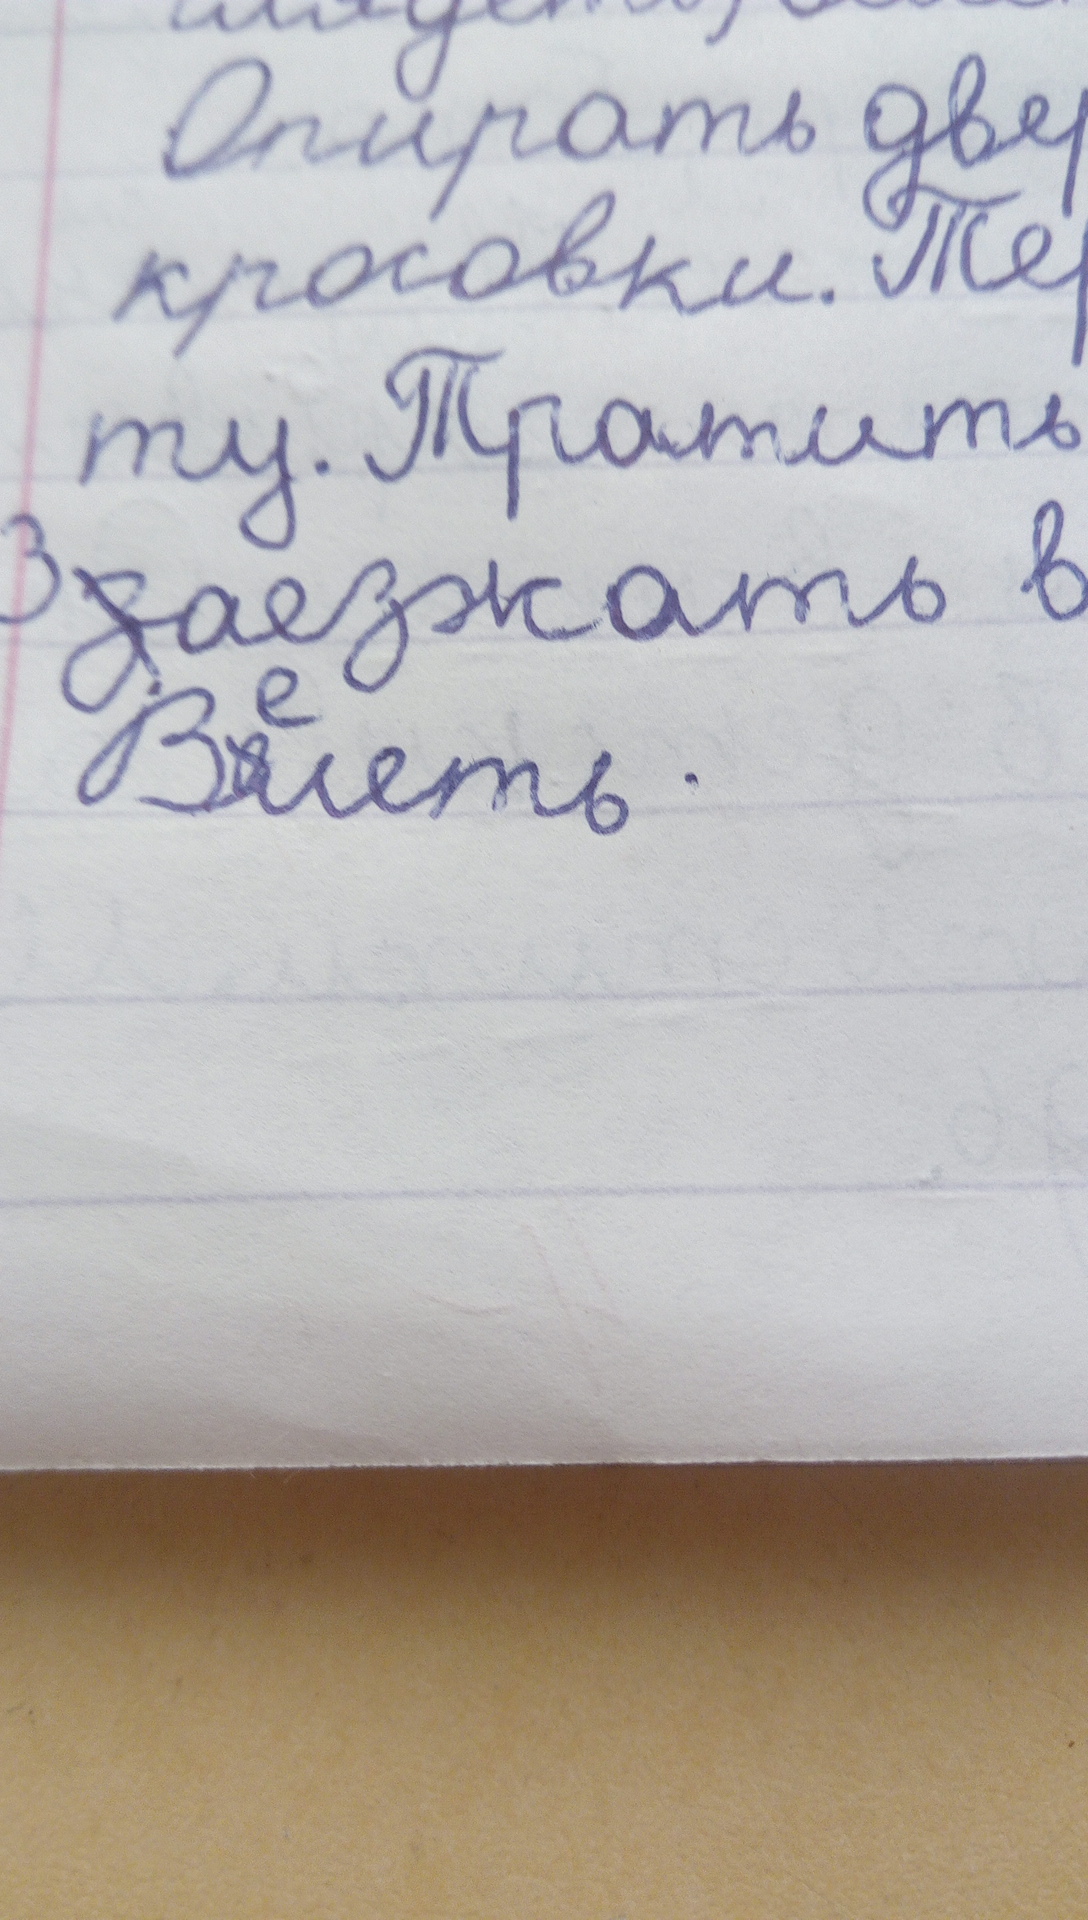 Опирать двер
кросовки. Тер
ту. Тратить
Заезжать в
Велеть.